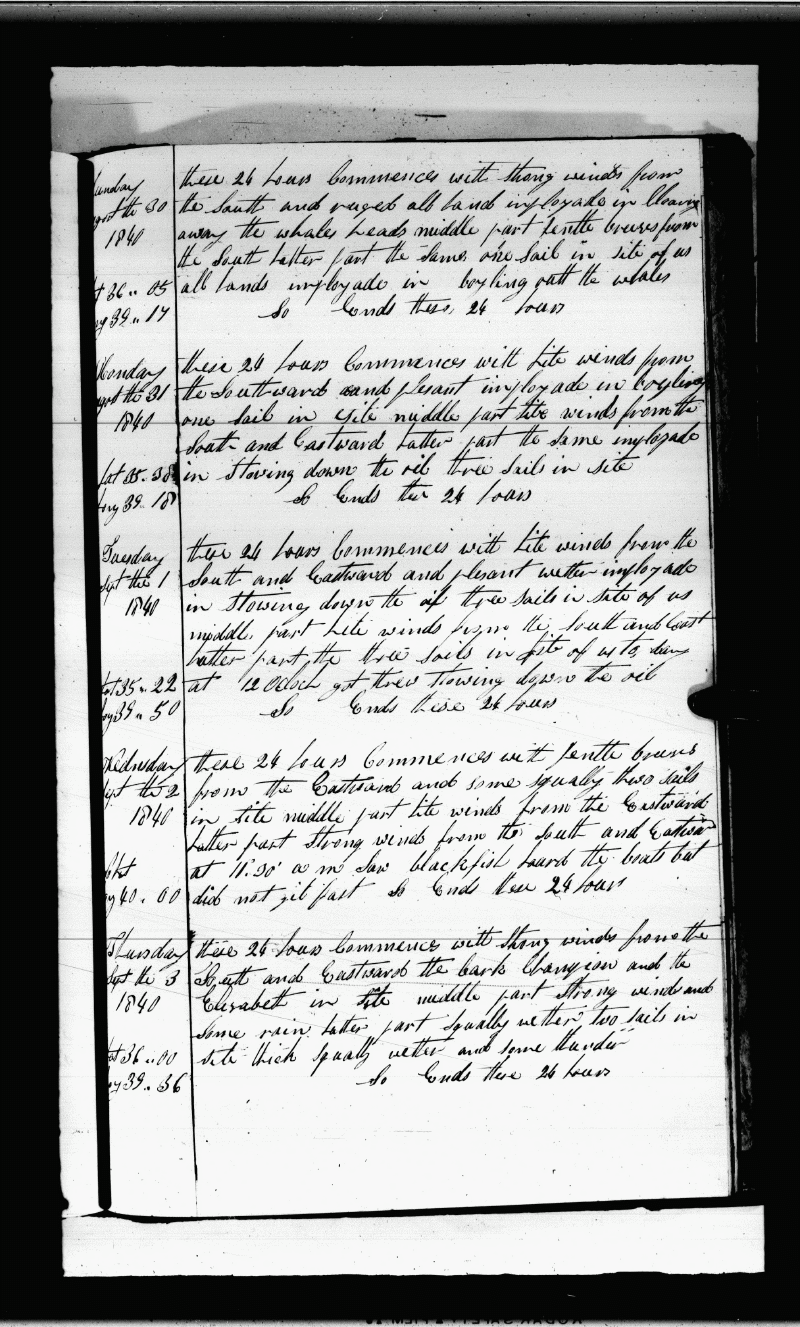 Sunday
Agost the 30
1840
Lat 36 .. 05
Long 39 .. 17
these 24 hours Commences with strong winds from
the South and ruged all hand imployade in Cleaning
away the whales heads middle part gentle breses from
the South latter part the same one sail in site of us
all hands imployade in boyling out the whales
So Ends these 24 hours
Monday
Agost the 31
1840
Lat 35 .. 38
Long 39 .. 18
these 24 hours Commences with lite winds from
the Southward and plesant imployade in boyling
one sail in site middle part lite winds from the
South and Eastward latter part the same imployade
in stowing down the oil three sails in site
So Ends thee 24 hours
Tuesday
Sept the 1
1840
Lat 35 .. 22
Long 39 .. 50
these 24 hours Commences with lite winds from the
South and Eastward and plesant wether imployade
in stowing down the oil three sails in site of us
middle part lite winds from the South and East
latter part the three sails in site of us to day
at 12 Oclock got threw stowing down the oil
So Ends these 24 hours
Wednsday
Sept the 2
1840
Lat
Long 40 .. 00
these 24 hours Commences with gentle breses
from the Eastward and some squally two sails
in site middle part lite winds from the Eastward
latter part strong winds from the South and Eastward
at 11.30 a m Saw blackfish loard the boats but
did not git fast So Ends these 24 hours
Thursday
Sept the 3
1840
Lat 36 .. 00
Long 39 .. 36
these 24 hours Commences with strong winds from the
South and Eastward the bark Champion and the
Elizabeth in site middle part strong winds and
some rain latter part squally wether two sails in
site thick squally wether and some thunder
So Ends these 24 hours